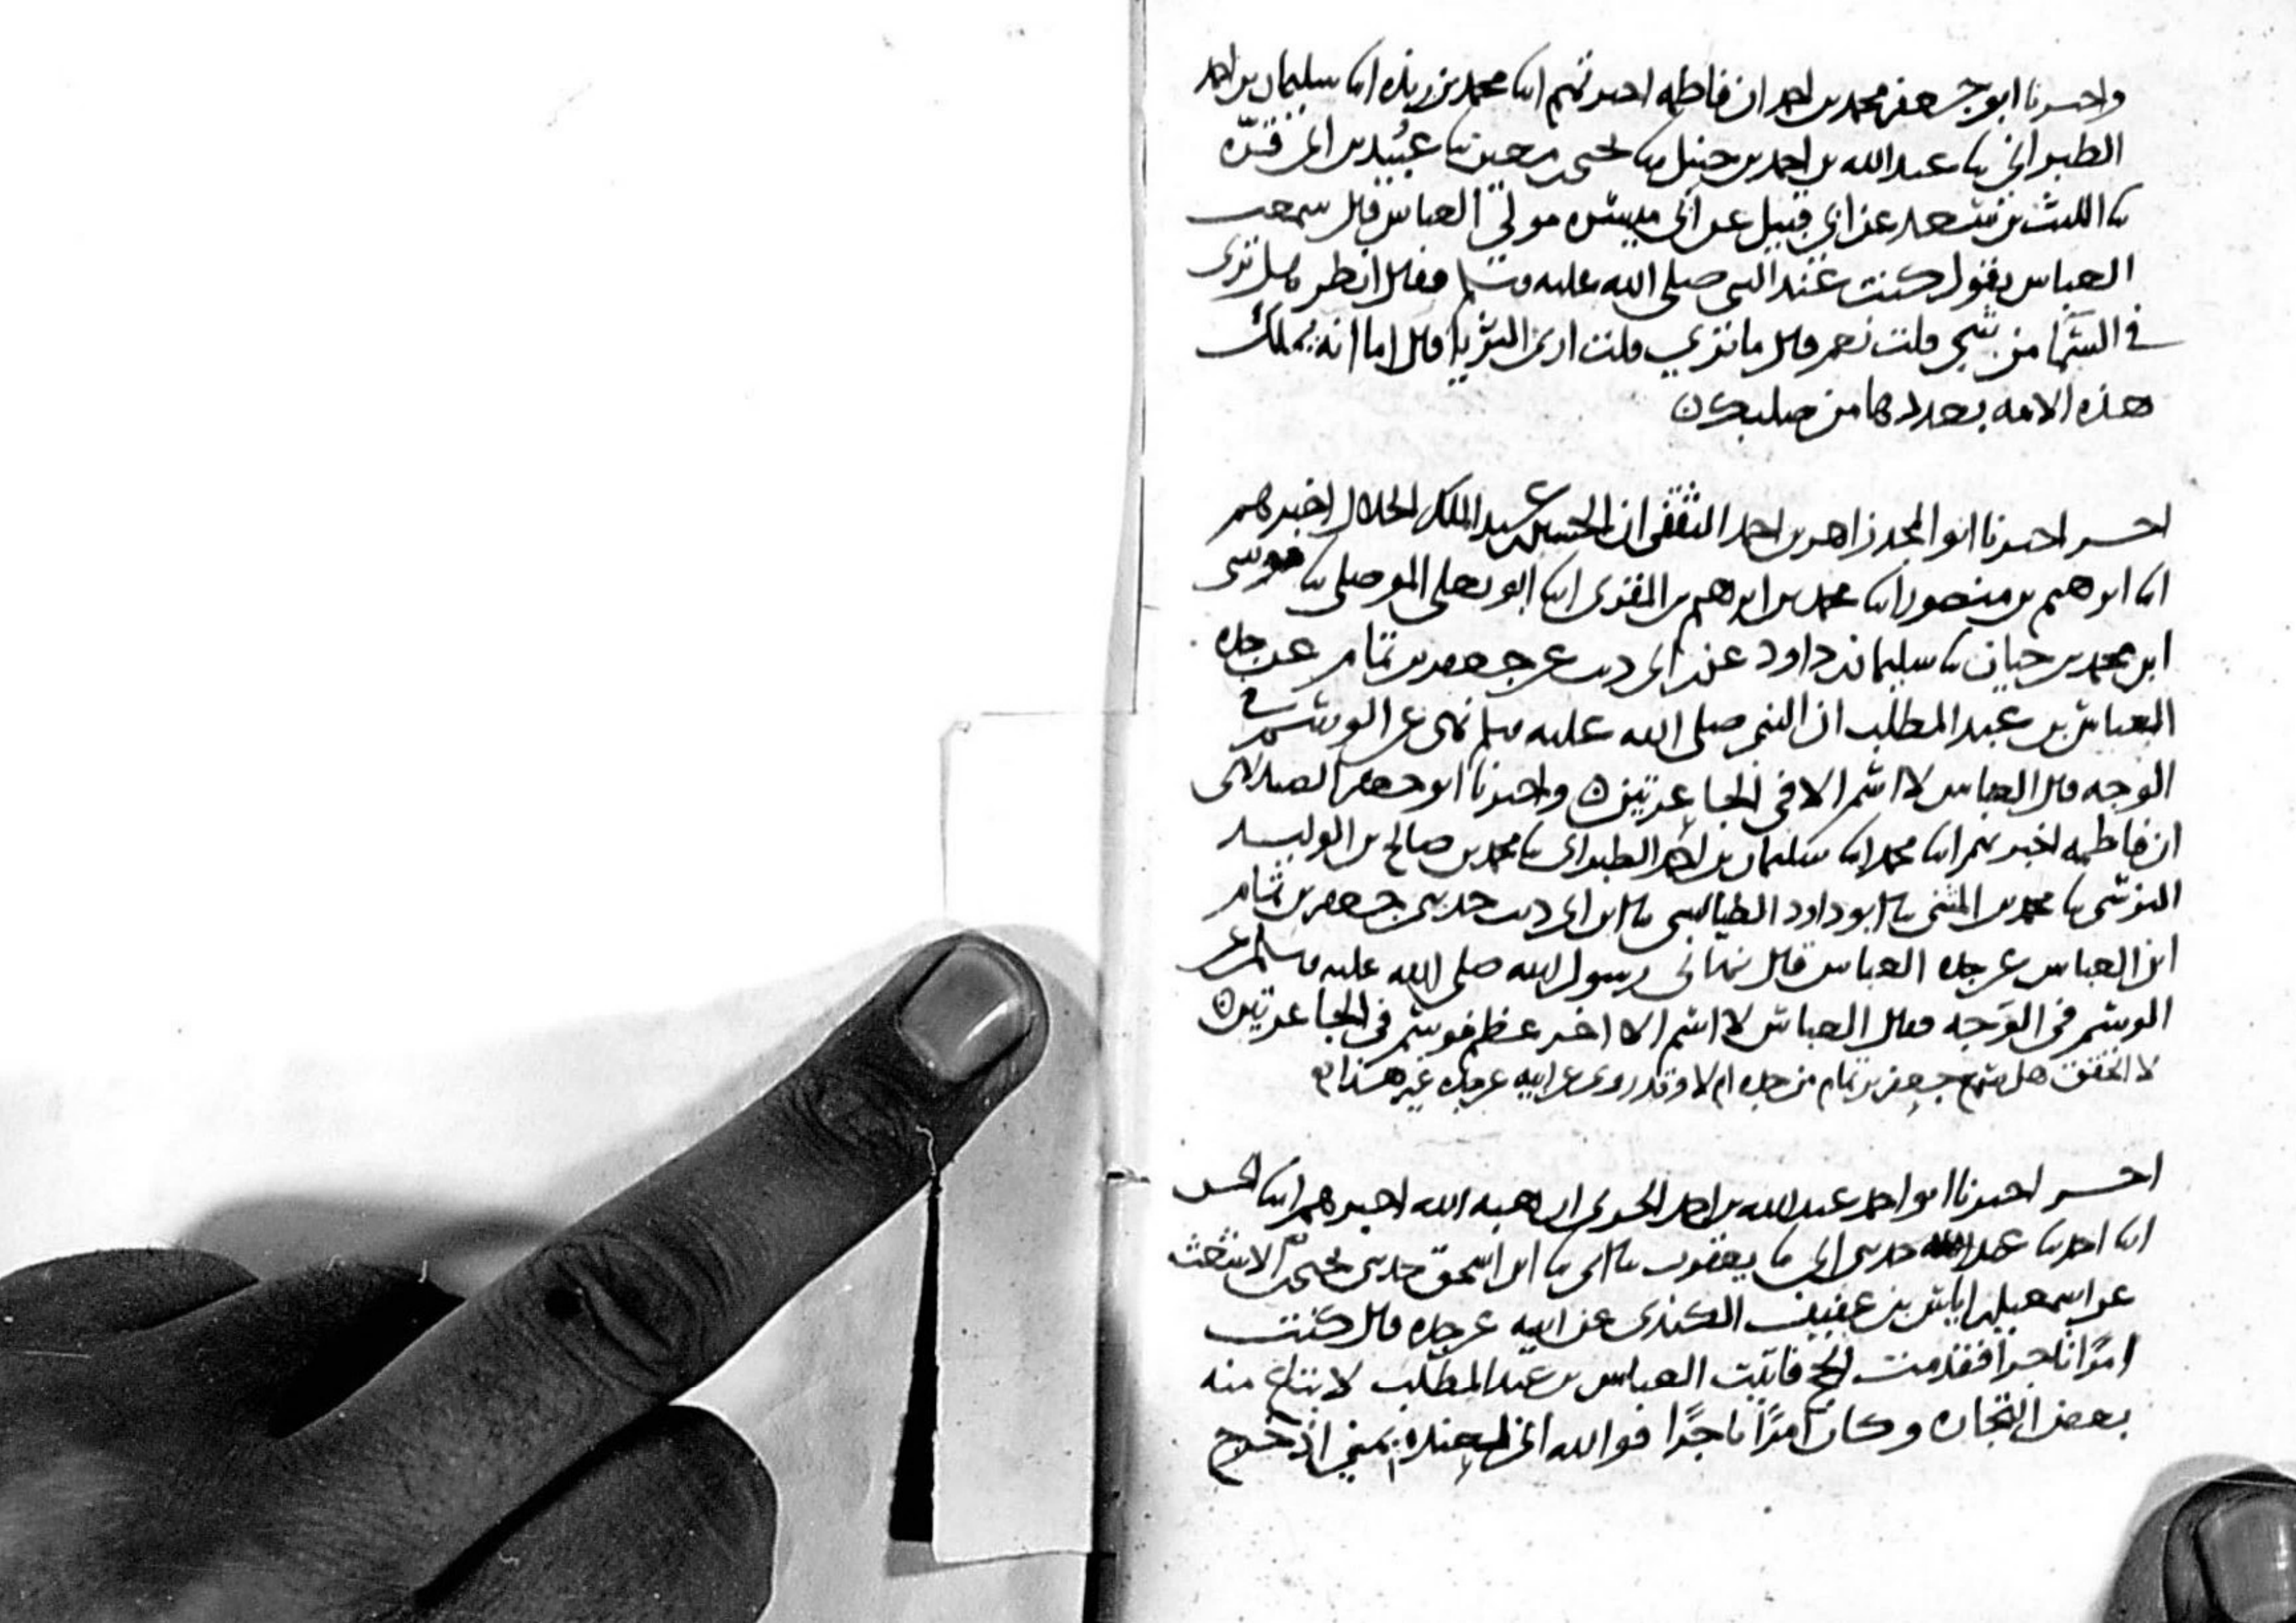 واخبرنا ابو جعفر محمد بن احمد ان فاطمه اخبرتهم ابنا محمد بن ريذه ابنا سليمان بن احمد
الطبراني ثنا عبد الله بن احمد بن حنبل ثنا يحيى بن معين ثنا عبيد بن ابي قرة
ثنا الليث بن سعد عن ابي قبيل عن ابي ميسره مولى العباس قال سمعت
العباس يقول كنت عند النبي صلى الله عليه وسلم فقال انظر هل ترى
في السما من شي قلت نعم قال ما ترى قلت ارى الثريا قال اما انه يملك
هذه الامه بعددها من صلبك
اخــر اخبرنا ابو المجد زاهر بن احمد الثقفي ان الحسين بن عبد الملك الخلال اخبرهم
ابنا ابرهيم بن منصور ابنا محمد بن ابرهيم بن المقرى ابنا ابو يعلى الموصلي ثنا موسى
ابن محمد بن حيان ثنا سليمان بن داود عن ابن ابي ذيب عن جعفر بن تمام عن جده
العباس بن عبد المطلب ان النبي صلى الله عليه وسلم نهى عن الوسم في
الوجه قال العباس لا اسم الا في الجاعرتين واخبرنا ابو جعفر الصيدلاني
ان فاطمه اخبرتهم ابنا محمد ابنا سليمان بن احمد الطبراني ثنا محمد بن صالح بن الوليد
النرسي ثنا محمد بن المثنى ثنا ابو داود الطيالسي ثنا ابن ابي ذيب حدثني جعفر بن تمام
ابن العباس عن جده العباس قال نهاني رسول الله صلى الله عليه وسلم عن
الوسم في الوجه فقال العباس لا اسم الا اخر عظم فوسم في الجاعرتين
لا اتحقق هل سمع جعفر بن تمام من جده ام لا وقد روى عن ابيه عن جده غير هذا
اخــر اخبرنا ابو احمد عبد الله بن احمد الحربي ان هبه الله اخبرهم ابنا الحسن
ابنا احمد ثنا عبد الله حدثني ابي ثنا يعقوب ثنا ابي ثنا ابن اسحق حدثني يحيى بن الاشعث
عن اسمعيل بن اياس بن عفيف الكندي عن ابيه عن جده قال كنت
امرًا تاجرًا فقدمت الحج فاتيت العباس بن عبد المطلب لابتاع منه
بعض التجاره وكان امرًا تاجرًا فوالله اني لعنده بمنى اذ خرج